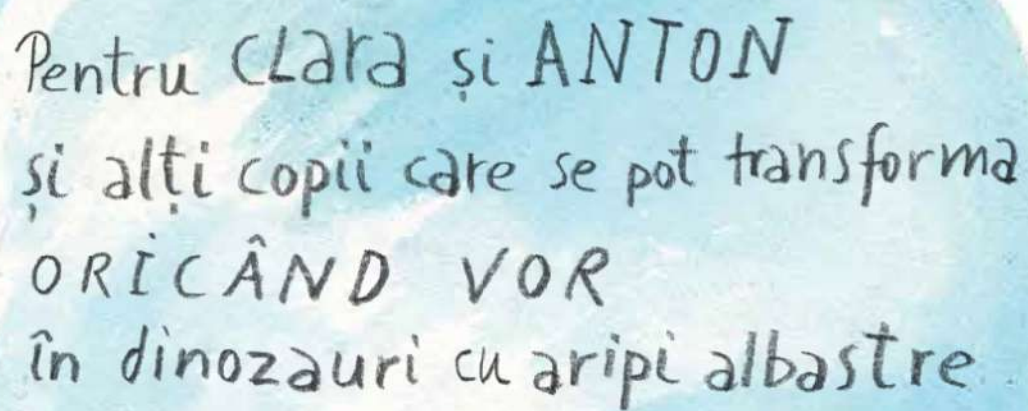 Pentru CLara și ANTON
și alți copii care se pot transforma
ORICÂND VOR
în dinozauri cu aripi albastre